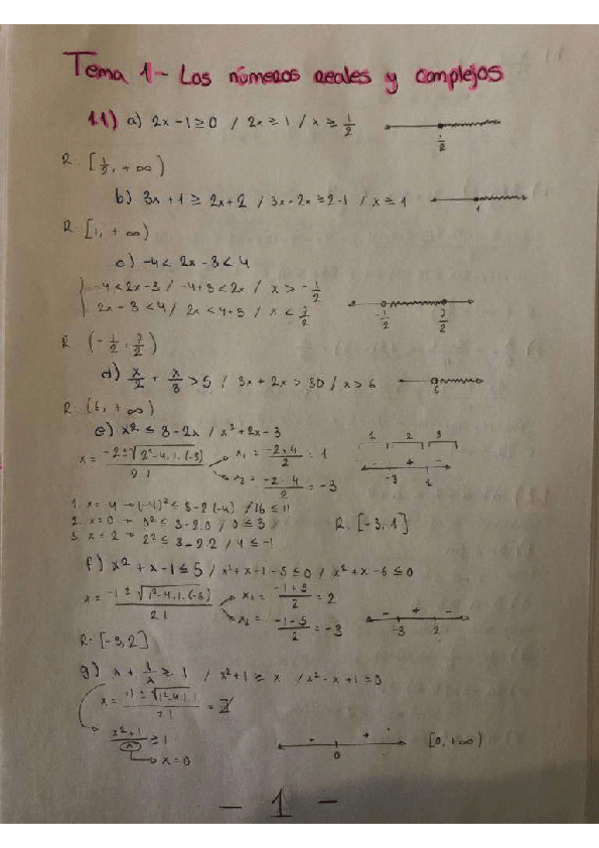 Tema 1- Los números reales y complejos
1.1) a) 2x-1≥0 / 2x≥1 / x≥ 1/2
1/2
R: [1/2, +∞)
b) 3x+1≥2x+2 / 3x-2x≥2-1 / x≥1
1
R: [1, +∞)
c) -4<2x-3<4
-4<2x-3 / -4+3<2x / x>-1/2
2x-3<4 / 2x<4+3 / x<7/2
-1/2 7/2
R: (-1/2, 7/2)
d) x/2 + x/3 >5 / 3x+2x>30 / x>6
6
R: (6, +∞)
e) x²≤3-2x / x²+2x-3
x= -2±√(2²-4.1.(-3)) / 2.1
x₁ = -2+4 / 2 = 1
x₂ = -2-4 / 2 = -3
1 2 3
- + -
-3 1
1. x=-4 → (-4)²≤3-2(-4) / 16≤11
2. x=0 → 0²≤3-2.0 / 0≤3
3. x=2 → 2²≤3-2.2 / 4≤-1
R: [-3,1]
f) x²+x-1≤5 / x²+x-1-5≤0 / x²+x-6≤0
x= -1±√(1²-4.1.(-6)) / 2.1
x₁ = -1+5 / 2 = 2
x₂ = -1-5 / 2 = -3
- + -
-3 2
R: [-3,2]
g) x+ 1/x ≥1 / x²+1≥x / x²-x+1≥0
x= -1±√(1²-4.1.1) / 2.1 = ∄
x²+1 / x ≥1
x=0
- +
0
[0,+∞)
- 1 -